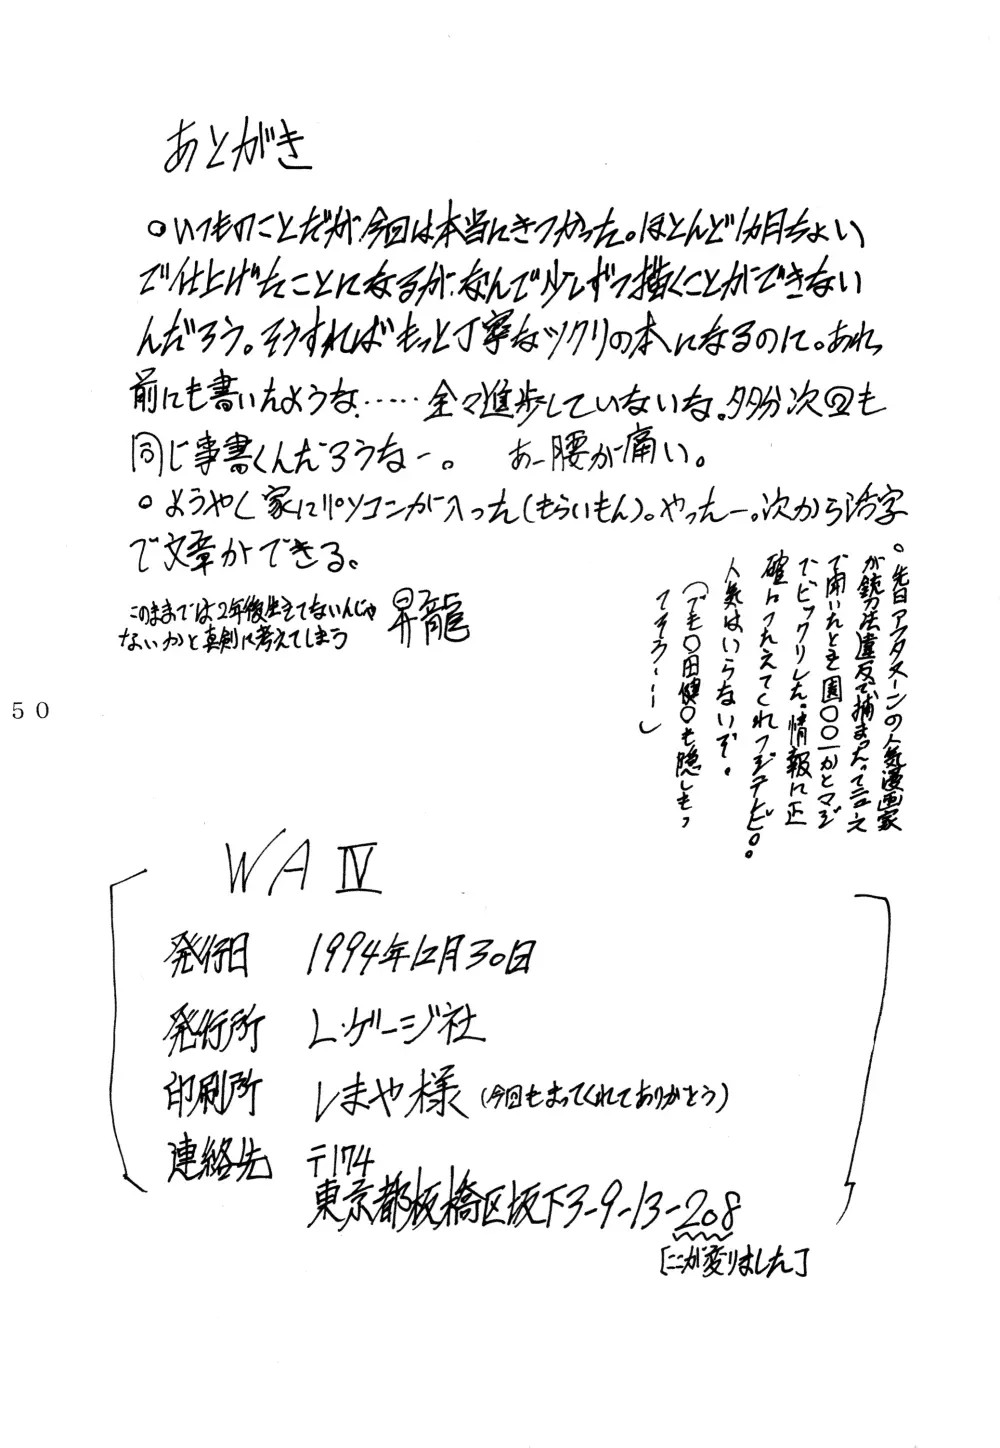 あとがき
○いつものことだが今回は本当にきつかった。ほとんど1カ月ちょい
で仕上げたことになるが、なんで少しずつ描くことができない
んだろう。そうすればもっと丁寧なツクリの本になるのに。あれ
前にも書いたような……全々進歩していないな。多分次回も
同じ事書くんだろうなー。 あー腰が痛い。
○ようやく家にパソコンが入った(もらいもん)。やったー。次から活字
で文章ができる。
このままでは2年後生きてないんじゃ
ないかと真剣に考えてしまう
昇龍
○先日アフタヌーンの人気漫画家
が銃刀法違反で捕まったってニュース
で聞いたとき園○○一かとマジ
でビックリした。情報は正
確につたえてくれフジテレビ。
人気はいらないぞ。
(でも○田健○も隠しもっ
てそう……)
50
WA Ⅳ
発行日 1994年12月30日
発行所 L・ゲージ社
印刷所 しまや様(今回もまってくれてありがとう)
連絡先 〒174
東京都板橋区坂下3-9-13-208
[ここが変りました]